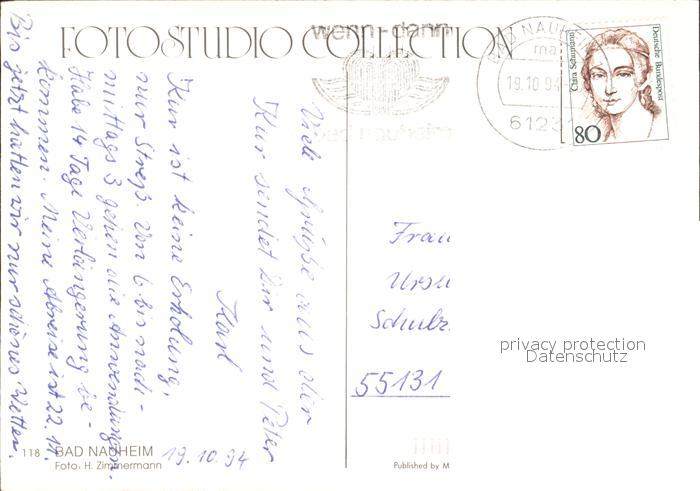 FOTOSTUDIO COLLECTION
wenn-dann
bad nauheim
BAD NAUHEIM
19.10.94
6123
Deutsche Bundespost
Clara Schumann
80
Viele Grüße aus der
Kur sendet Dir und Peter
Karl
Kur ist keine Erholung,
nur Streß. Von 6 bis nach-
mittags 3 gehen die Anwendungen.
Habe 14 Tage Verlängerung be-
kommen. Meine Abreise ist 22.11.
Bis jetzt hatten wir nur schönes Wetter.
Frau
Ursu
Schulz
55131
privacy protection
Datenschutz
118 BAD NAUHEIM
Foto: H. Zimmermann
19.10.94
Published by M